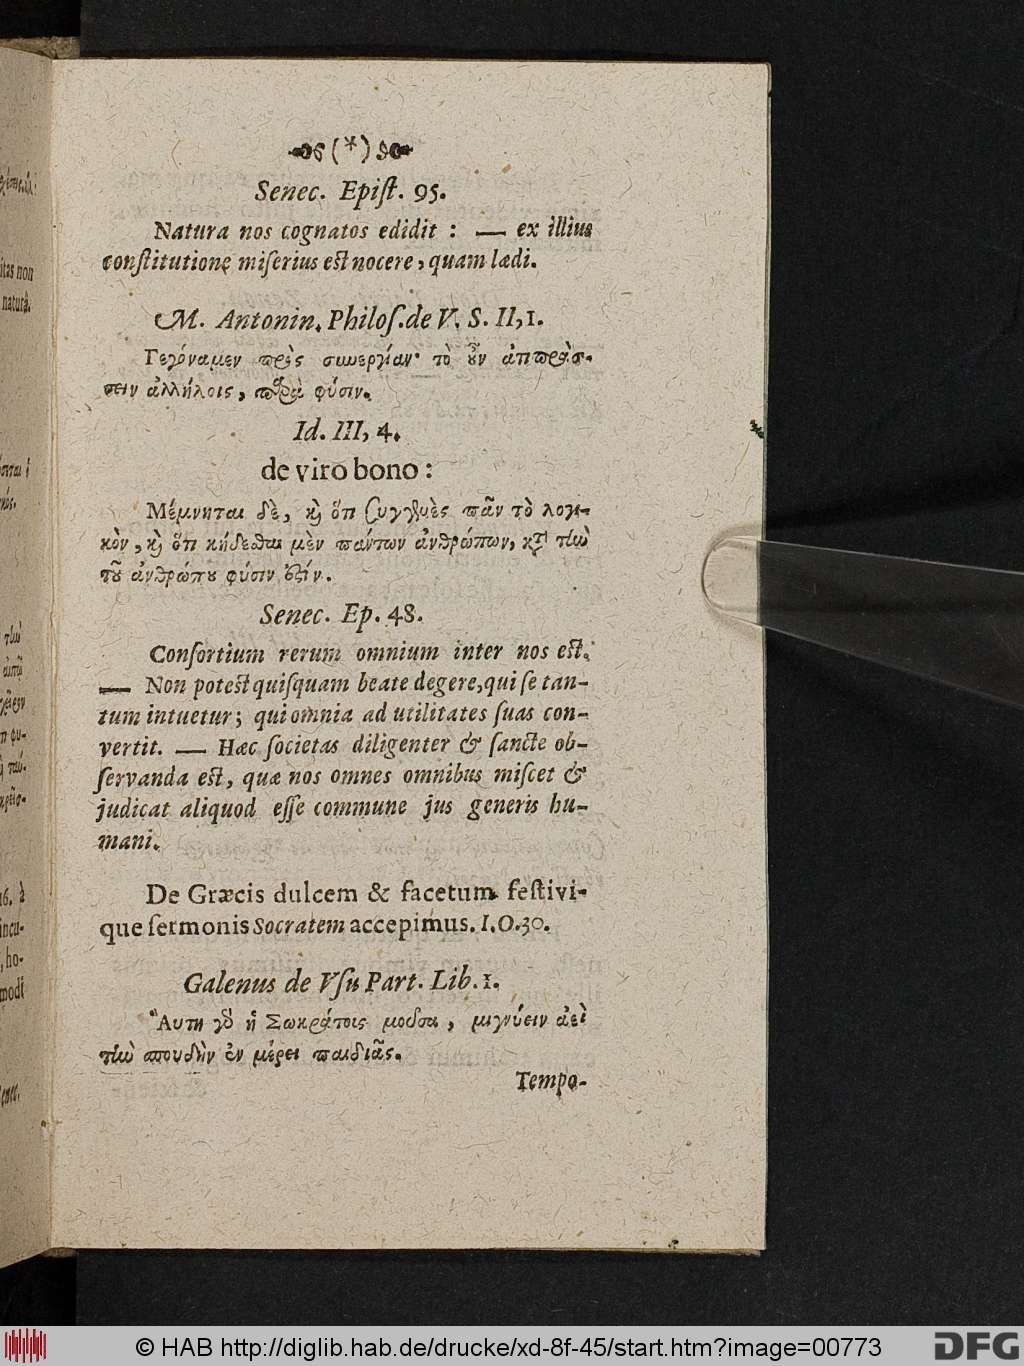 (*)
Senec. Epiſt. 95.
Natura nos cognatos edidit : — ex illius
conſtitutione miſerius est nocere, quam lædi.
M. Antonin. Philoſ. de V. S. II, 1.
Γεγόναμεν πρὸς συνεργίαν· τὸ οὖν ἀντιπράσ-
σειν ἀλλήλοις, παρὰ φύσιν.
Id. III, 4.
de viro bono :
Μέμνηται δὲ, καὶ ὅτι συγγενὲς πᾶν τὸ λογι-
κὸν, καὶ ὅτι κήδεσθαι μὲν πάντων ἀνθρώπων, κατὰ τὴν
τοῦ ἀνθρώπου φύσιν ἐστίν.
Senec. Ep. 48.
Conſortium rerum omnium inter nos est.
— Non potest quiſquam beate degere, qui ſe tan-
tum intuetur; qui omnia ad utilitates ſuas con-
vertit. — Hæc ſocietas diligenter & ſancte ob-
ſervanda est, quæ nos omnes omnibus miſcet &
judicat aliquod eſſe commune jus generis hu-
mani.
De Græcis dulcem & facetum feſtivi-
que ſermonis Socratem accepimus. I. O. 30.
Galenus de Vſu Part. Lib. 1.
Αὕτη γὰρ ἡ Σωκράτοις μοῦσα, μιγνύειν ἀεὶ
τὴν σπουδὴν ἐν μέρει παιδιᾶς.
Tempo-
itas non
naturâ.
16. à
incu-
, ho-
modi
© HAB http://diglib.hab.de/drucke/xd-8f-45/start.htm?image=00773
DFG